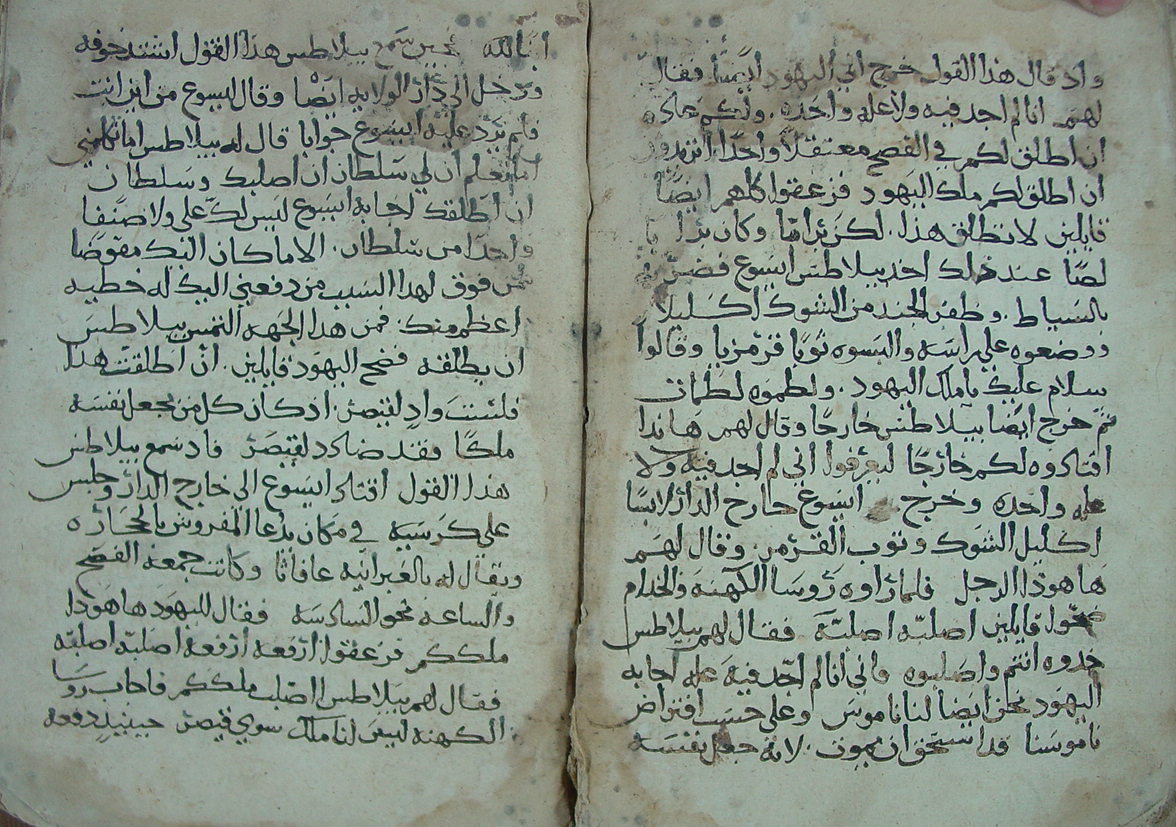 واذ قال هذا القول خرج الي اليهود ايضا فقال
لهم انا لم اجد فيه ولا عله واحده ولكم عاده
ان اطلق لكم في الفصح معتقلا واحدا اتريدون
ان اطلق لكم ملك اليهود فزعقوا كلهم ايضا
قايلين لا تطلق هذا لكن برابا وكان برابا
لصا عند ذلك اخد بيلاطس ايسوع فضربه
بالسياط وظفر الجند من الشوك اكليلا
ووضعوه علي راسه والبسوه ثوبا قرمزيا وقالوا
سلام عليك يا ملك اليهود ولطموه لطمات
ثم خرج ايضا بيلاطس خارجا وقال لهم هاندا
اقتاده لكم خارجا ليعرفوا اني لم اجد فيه ولا
عله واحده وخرج ايسوع خارج الدار لابسا
اكليل الشوك وثوب القرمز وقال لهم
ها هوذا الرجل فلما راوه روسا الكهنه والخدام
ضجوا قايلين اصلبه اصلبه فقال لهم بيلاطس
خدوه انتم واصلبوه فاني انا لم اجد فيه عله اجابه
اليهود نحن ايضا لنا ناموس وعلي حسب افتراض
ناموسنا قد استحق ان يموت لانه جعل نفسه
ابنا لله فحين سمع بيلاطس هذا القول اشتد خوفه
ودخل الي دار الولايه ايضا وقال لايسوع من اين انت
فلم يرد عليه ايسوع جوابا قال له بيلاطس اما تكلمني
اما تعلم ان لي سلطان ان اصلبك وسلطان
ان اطلقك اجابه ايسوع ليس لك علي ولا صنفا
واحدا من سلطان الا ما كان اليك مفوضا
من فوق لهدا السبب من دفعني اليك له خطيه
اعظم منك فمن هدا الجهه التمس بيلاطس
ان يطلقه فضج اليهود قايلين ان اطلقت هدا
فلست واد لقيصر اذ كان كل من يجعل نفسه
ملكا فقد ضادد لقيصر فاد سمع بيلاطس
هذا القول اقتاد ايسوع الي خارج الدار وجلس
علي كرسيه في مكان يدعا المفروش بالحجاره
ويقال له بالعبرانيه غافاثا وكانت جمعة الفصح
والساعه نحو السادسه فقال لليهود ها هودا
ملككم فزعقوا ارفعه ارفعه اصلبه اصلبه
فقال لهم بيلاطس ااصلب ملككم فاجاب روسا
الكهنه ليس لنا ملك سوي قيصر حينيد دفعه